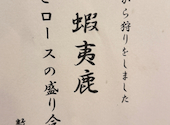 から狩りをしました
蝦夷鹿
とロースの盛り合